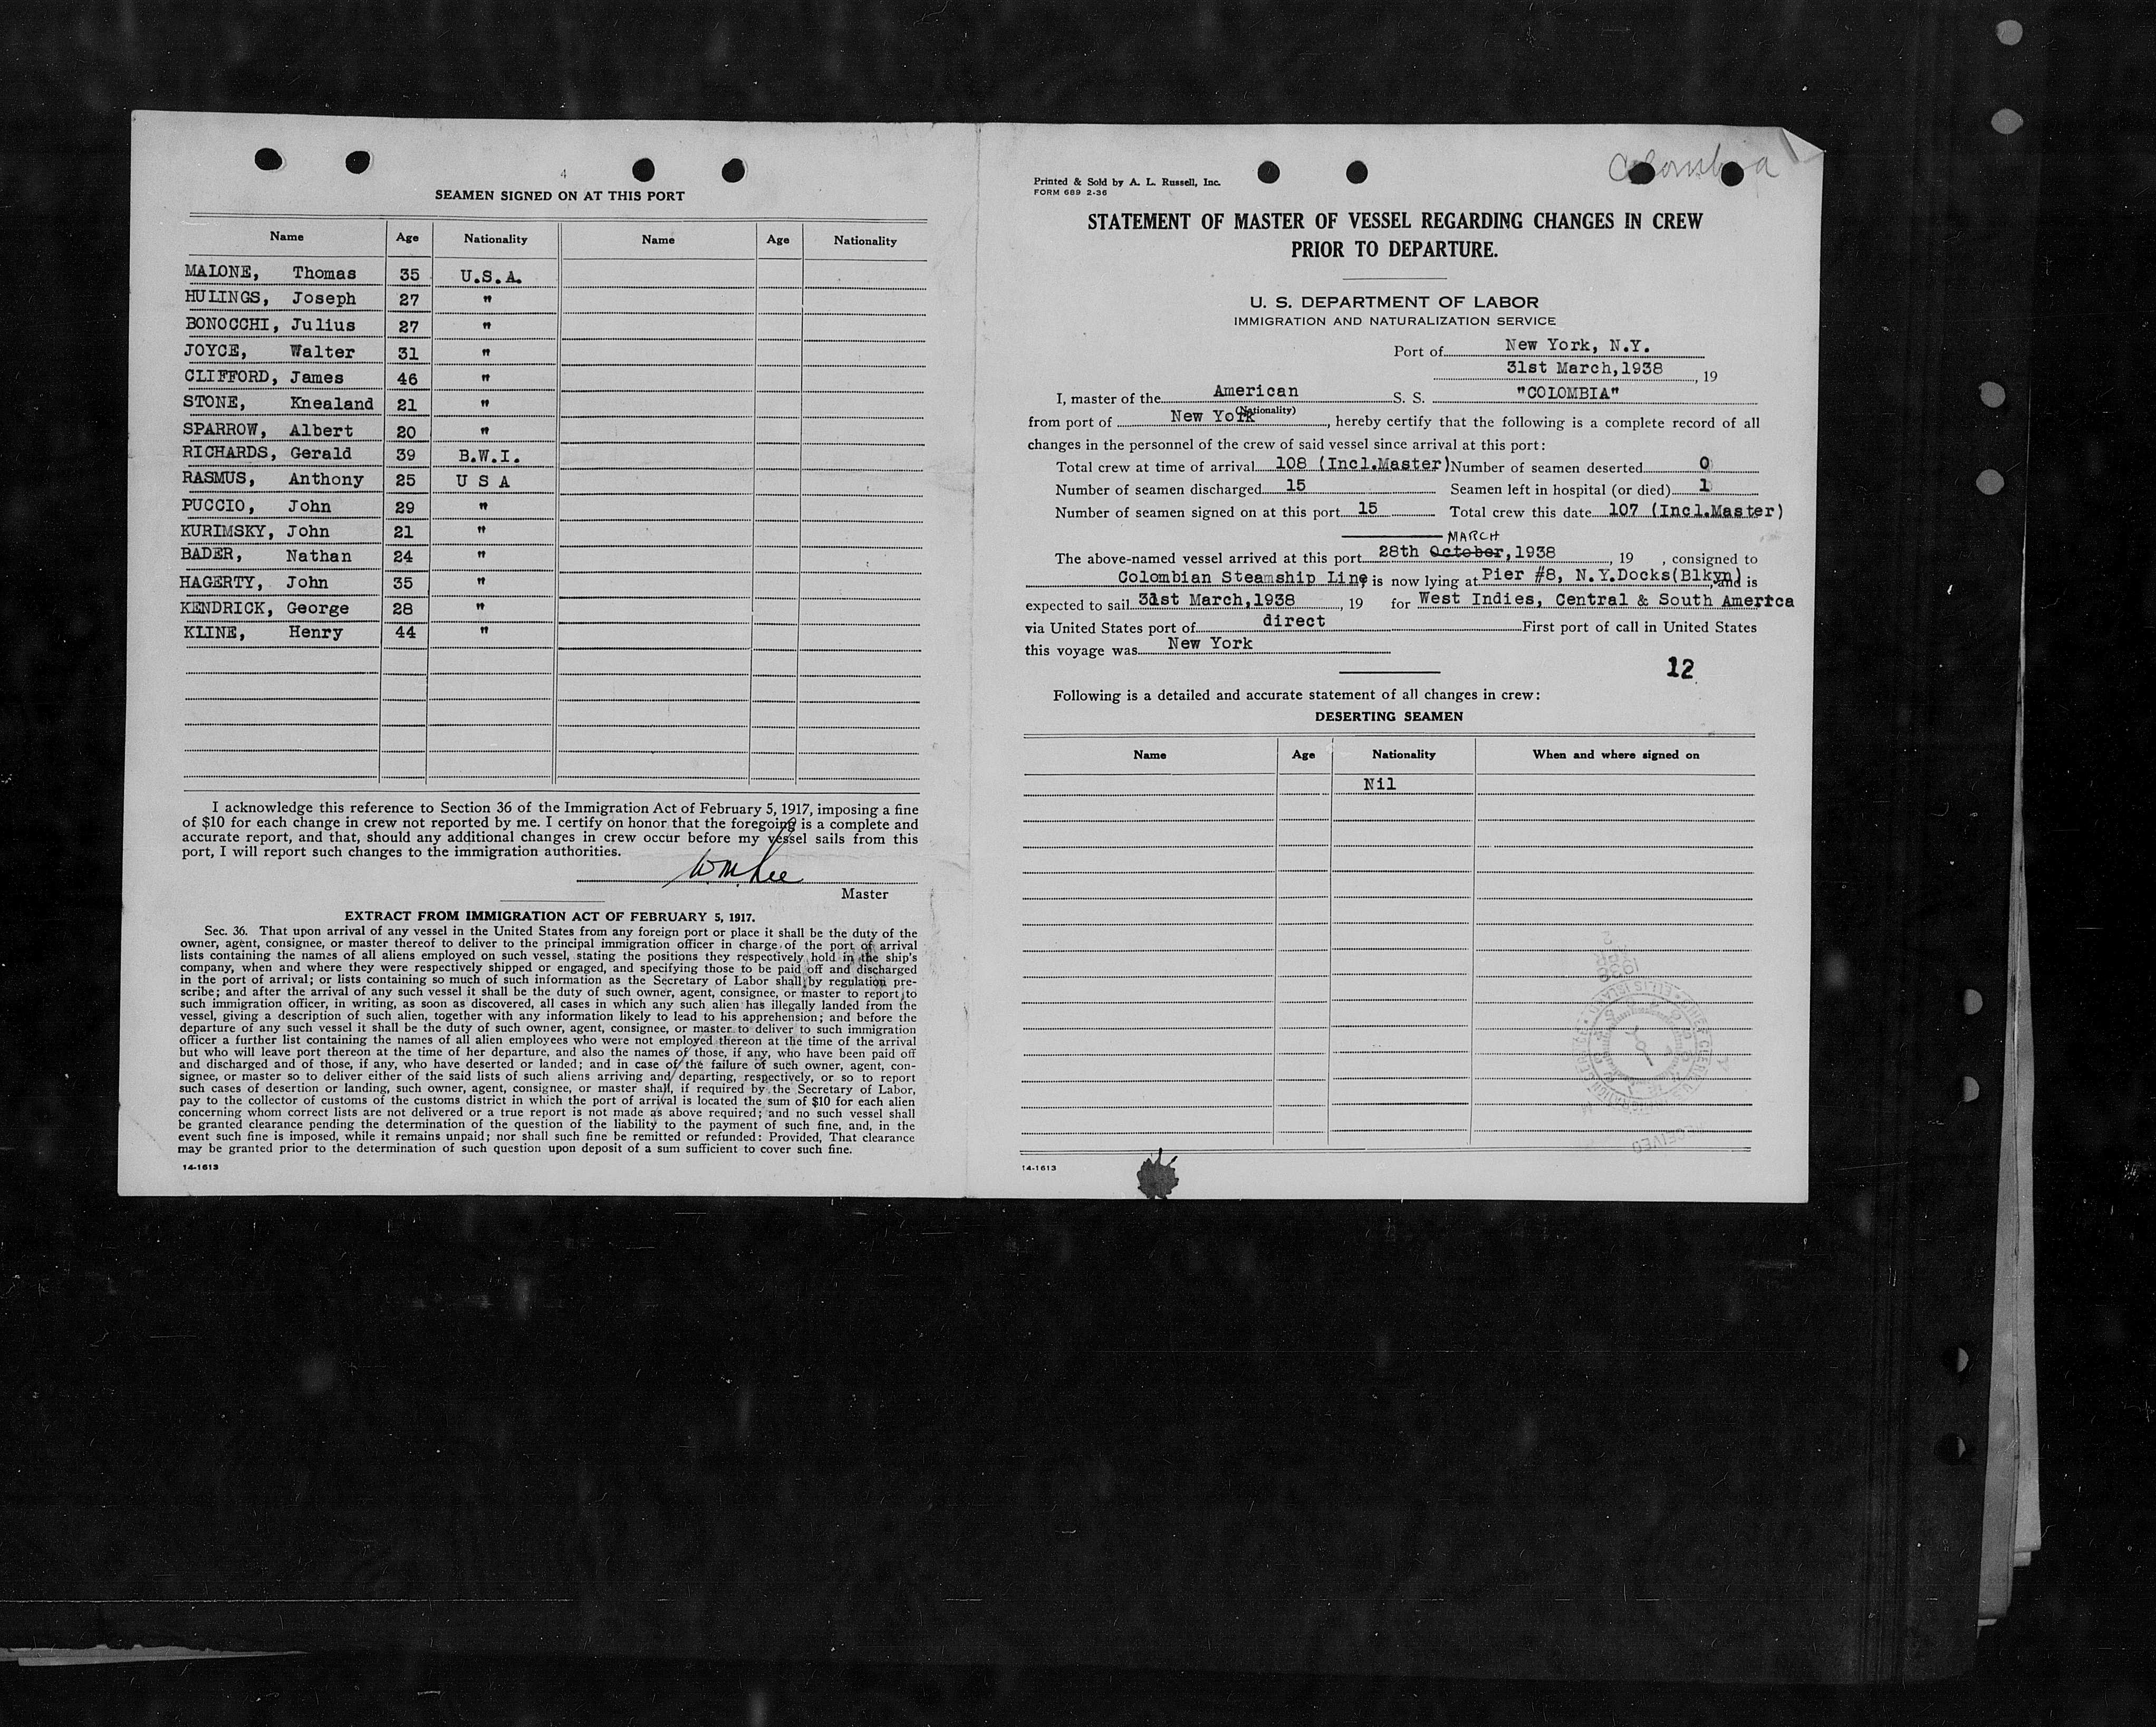 4
SEAMEN SIGNED ON AT THIS PORT
Name Age Nationality Name Age Nationality
MALONE, Thomas 35 U.S.A.
HULINGS, Joseph 27 "
BONOCCHI, Julius 27 "
JOYCE, Walter 31 "
CLIFFORD, James 46 "
STONE, Knealand 21 "
SPARROW, Albert 20 "
RICHARDS, Gerald 39 B.W.I.
RASMUS, Anthony 25 U S A
PUCCIO, John 29 "
KURIMSKY, John 21 "
BADER, Nathan 24 "
HAGERTY, John 35 "
KENDRICK, George 28 "
KLINE, Henry 44 "
I acknowledge this reference to Section 36 of the Immigration Act of February 5, 1917, imposing a fine
of $10 for each change in crew not reported by me. I certify on honor that the foregoing is a complete and
accurate report, and that, should any additional changes in crew occur before my vessel sails from this
port, I will report such changes to the immigration authorities.
W.M. Lee
Master
EXTRACT FROM IMMIGRATION ACT OF FEBRUARY 5, 1917.
Sec. 36. That upon arrival of any vessel in the United States from any foreign port or place it shall be the duty of the
owner, agent, consignee, or master thereof to deliver to the principal immigration officer in charge of the port of arrival
lists containing the names of all aliens employed on such vessel, stating the positions they respectively hold in the ship's
company, when and where they were respectively shipped or engaged, and specifying those to be paid off and discharged
in the port of arrival; or lists containing so much of such information as the Secretary of Labor shall by regulation pre-
scribe; and after the arrival of any such vessel it shall be the duty of such owner, agent, consignee, or master to report to
such immigration officer, in writing, as soon as discovered, all cases in which any such alien has illegally landed from the
vessel, giving a description of such alien, together with any information likely to lead to his apprehension; and before the
departure of any such vessel it shall be the duty of such owner, agent, consignee, or master to deliver to such immigration
officer a further list containing the names of all alien employees who were not employed thereon at the time of the arrival
but who will leave port thereon at the time of her departure, and also the names of those, if any, who have been paid off
and discharged and of those, if any, who have deserted or landed; and in case of the failure of such owner, agent, con-
signee, or master so to deliver either of the said lists of such aliens arriving and departing, respectively, or so to report
such cases of desertion or landing, such owner, agent, consignee, or master shall, if required by the Secretary of Labor,
pay to the collector of customs of the customs district in which the port of arrival is located the sum of $10 for each alien
concerning whom correct lists are not delivered or a true report is not made as above required; and no such vessel shall
be granted clearance pending the determination of the question of the liability to the payment of such fine, and, in the
event such fine is imposed, while it remains unpaid; nor shall such fine be remitted or refunded: Provided, That clearance
may be granted prior to the determination of such question upon deposit of a sum sufficient to cover such fine.
14-1613
Colombia
Printed & Sold by A. L. Russell, Inc.
FORM 689 2-36
STATEMENT OF MASTER OF VESSEL REGARDING CHANGES IN CREW
PRIOR TO DEPARTURE.
U. S. DEPARTMENT OF LABOR
IMMIGRATION AND NATURALIZATION SERVICE
Port of New York, N.Y.
31st March,1938, 19
I, master of the American S. S. "COLOMBIA"
(Nationality)
from port of New York, hereby certify that the following is a complete record of all
changes in the personnel of the crew of said vessel since arrival at this port:
Total crew at time of arrival 108 (Incl.Master) Number of seamen deserted 0
Number of seamen discharged 15 Seamen left in hospital (or died) 1
Number of seamen signed on at this port 15 Total crew this date 107 (Incl.Master)
MARCH
The above-named vessel arrived at this port 28th October,1938, 19 , consigned to
Colombian Steamship Line is now lying at Pier #8, N.Y.Docks(Blkyn) and is
expected to sail 31st March,1938, 19 for West Indies, Central & South America
via United States port of direct First port of call in United States
this voyage was New York
12
Following is a detailed and accurate statement of all changes in crew:
DESERTING SEAMEN
Name Age Nationality When and where signed on
Nil
1938
RECEIVED
14-1613